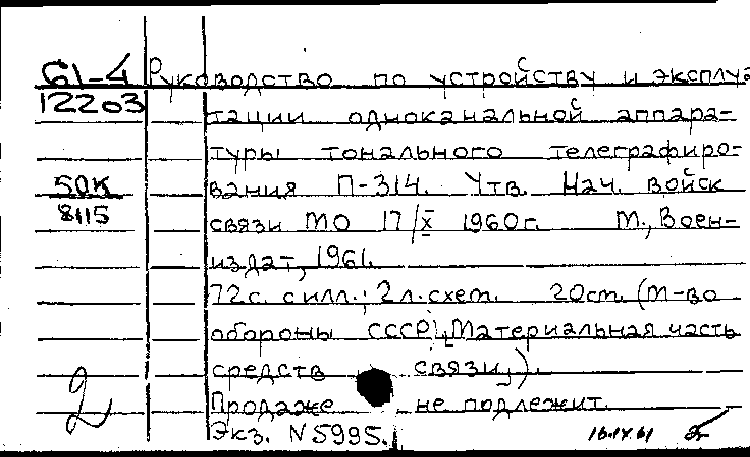 61-4
12203
50К
8115
2
Руководство по устройству и эксплуа
тации одноканальной аппара-
туры тонального телеграфиро-
вания П-314. Утв. Нач. войск
связи МО 17/X 1960г. М., Воен-
издат, 1961.
72с. с илл.; 2 л. схем. 20см. (М-во
обороны СССР. „Материальная часть
средств связи„).
Продаже не подлежит.
Экз. N5995.
16.IX.61